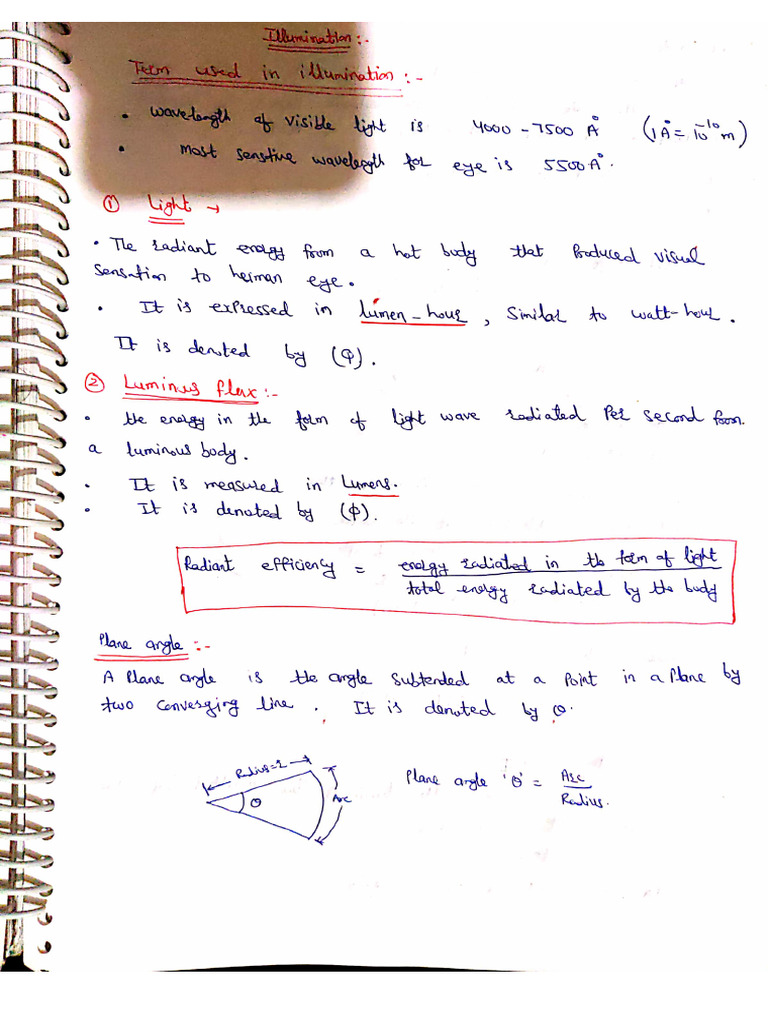 Illumination :-
Term used in illumination :-
• wavelength of visible light is 4000 - 7500 Å (1 Å = 10⁻¹⁰ m)
• most sensitive wavelength for eye is 5500 Å.
① Light →
• The radiant energy from a hot body that Produced visual
sensation to heiman eye.
• It is expressed in lumen-hour, Similar to watt-hour.
It is denoted by (Q).
② Luminus flux :-
• the energy in the form of light wave radiated Per second from
a luminous body.
• It is measured in Lumens.
• It is denoted by (Φ).
Radiant efficiency = energy radiated in the form of light
total energy radiated by the body
Plane angle :-
A Plane angle is the angle subtended at a Point in a Plane by
two Converging line. It is denoted by θ.
Arc
Plane angle 'θ' = Arc
Radius.
θ